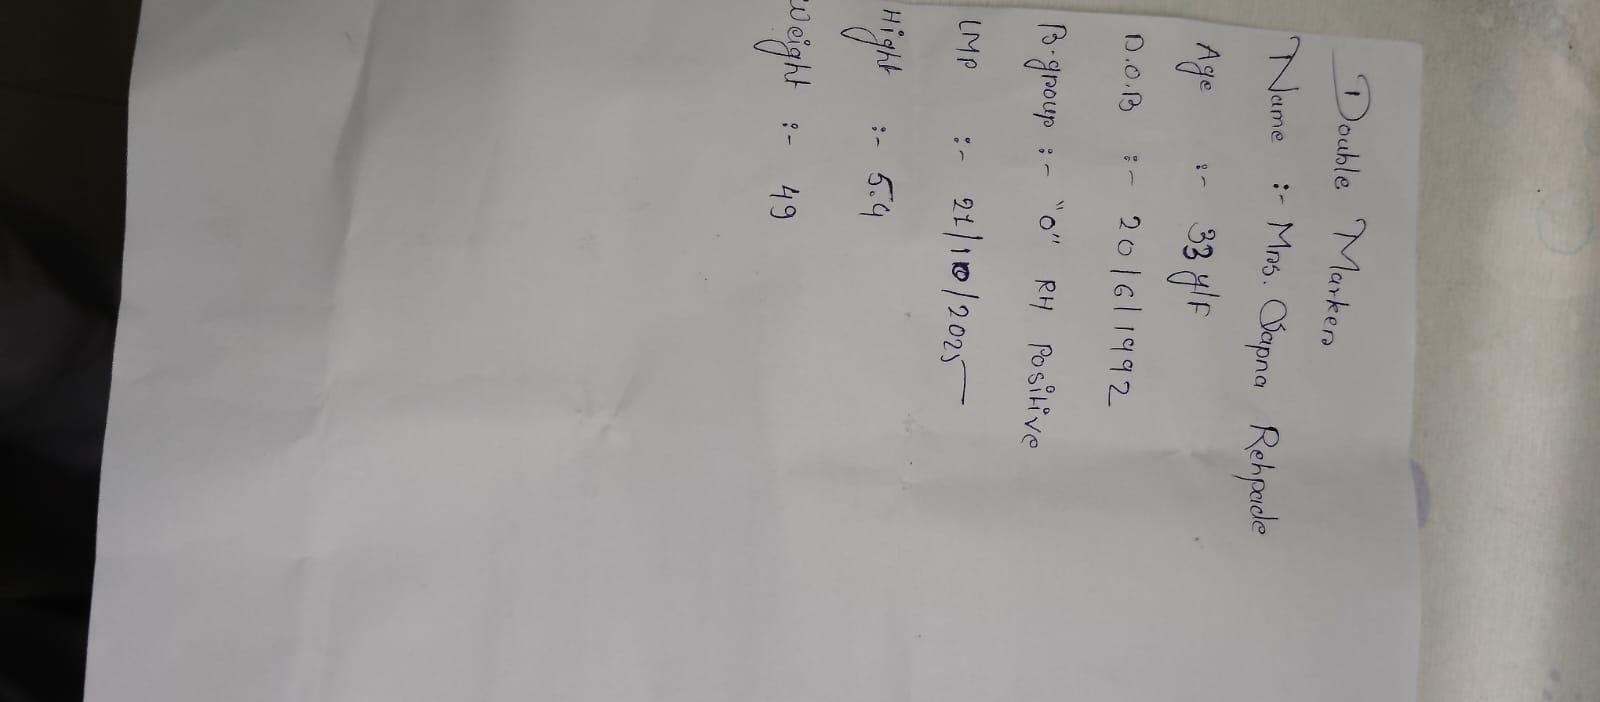 Double Marker
Name :- Mrs. Sapna Rehpade
Age :- 33 y/F
D.O.B :- 20/6/1992
B.group :- "O" RH Positive
LMP :- 21/10/2025
Hight :- 5.4
Weight :- 49